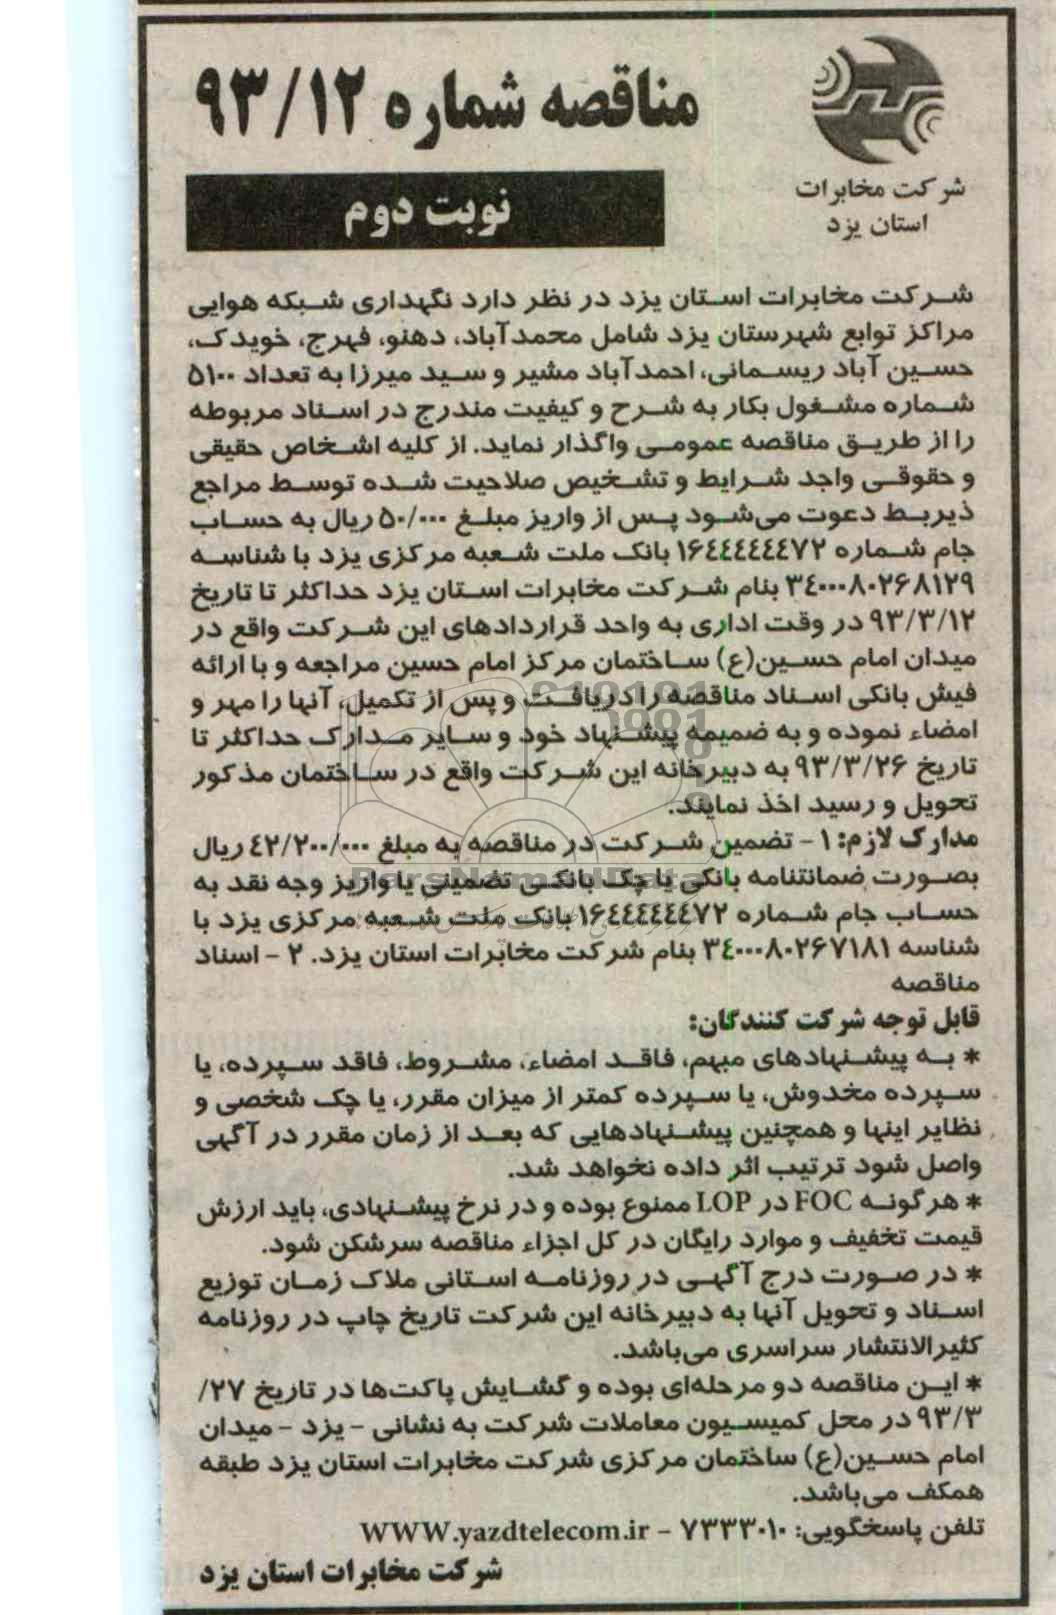 مناقصه شماره ۹۳/۱۲
شرکت مخابرات
استان یزد
نوبت دوم
شرکت مخابرات استان یزد در نظر دارد نگهداری شبکه هوایی
مراکز توابع شهرستان یزد شامل محمدآباد، دهنو، فهرج، خویدک،
حسین آباد ریسمانی، احمدآباد مشیر و سید میرزا به تعداد ۵۱۰۰
شماره مشغول بکار به شرح و کیفیت مندرج در اسناد مربوطه
را از طریق مناقصه عمومی واگذار نماید. از کلیه اشخاص حقیقی
و حقوقی واجد شرایط و تشخیص صلاحیت شده توسط مراجع
ذیربط دعوت می‌شود پس از واریز مبلغ ۵۰/۰۰۰ ریال به حساب
جام شماره ۱۶٤٤٤٤٤٤۷۲ بانک ملت شعبه مرکزی یزد با شناسه
۳٤۰۰۰۸۰۲۶۸۱۲۹ بنام شرکت مخابرات استان یزد حداکثر تا تاریخ
۹۳/۳/۱۲ در وقت اداری به واحد قراردادهای این شرکت واقع در
میدان امام حسین(ع) ساختمان مرکز امام حسین مراجعه و با ارائه
فیش بانکی اسناد مناقصه را دریافت و پس از تکمیل، آنها را مهر و
امضاء نموده و به ضمیمه پیشنهاد خود و سایر مدارک حداکثر تا
تاریخ ۹۳/۳/۲۶ به دبیرخانه این شرکت واقع در ساختمان مذکور
تحویل و رسید اخذ نمایند.
مدارک لازم: ۱ - تضمین شرکت در مناقصه به مبلغ ٤۲/۲۰۰/۰۰۰ ریال
بصورت ضمانتنامه بانکی یا چک بانکی تضمینی یا واریز وجه نقد به
حساب جام شماره ۱۶٤٤٤٤٤٤۷۲ بانک ملت شعبه مرکزی یزد با
شناسه ۳٤۰۰۰۸۰۲۶۷۱۸۱ بنام شرکت مخابرات استان یزد. ۲ - اسناد
مناقصه
قابل توجه شرکت کنندگان:
* به پیشنهادهای مبهم، فاقد امضاء، مشروط، فاقد سپرده، یا
سپرده مخدوش، یا سپرده کمتر از میزان مقرر، یا چک شخصی و
نظایر اینها و همچنین پیشنهادهایی که بعد از زمان مقرر در آگهی
واصل شود ترتیب اثر داده نخواهد شد.
* هرگونه FOC در LOP ممنوع بوده و در نرخ پیشنهادی، باید ارزش
قیمت تخفیف و موارد رایگان در کل اجزاء مناقصه سرشکن شود.
* در صورت درج آگهی در روزنامه استانی ملاک زمان توزیع
اسناد و تحویل آنها به دبیرخانه این شرکت تاریخ چاپ در روزنامه
کثیرالانتشار سراسری می‌باشد.
* این مناقصه دو مرحله‌ای بوده و گشایش پاکت‌ها در تاریخ ۲۷/
۹۳/۳ در محل کمیسیون معاملات شرکت به نشانی - یزد - میدان
امام حسین(ع) ساختمان مرکزی شرکت مخابرات استان یزد طبقه
همکف می‌باشد.
تلفن پاسخگویی: ۷۲۳۳۰۱۰ - WWW.yazdtelecom.ir
شرکت مخابرات استان یزد
ParsNamadData